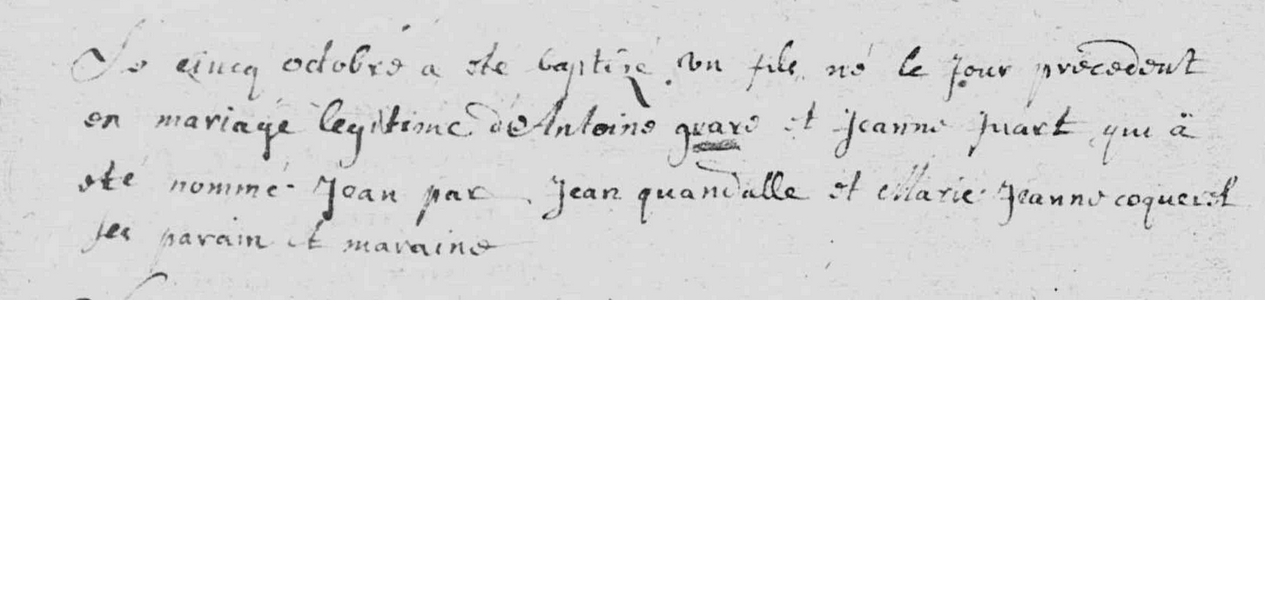 Le cincq octobre a ete baptizé un fils né le jour précedent
en mariage legitime de Antoine grare et Jeanne huart qui ä
eté nommé Jean par Jean quandalle et Marie Jeanne coquerel
ses parain et maraine